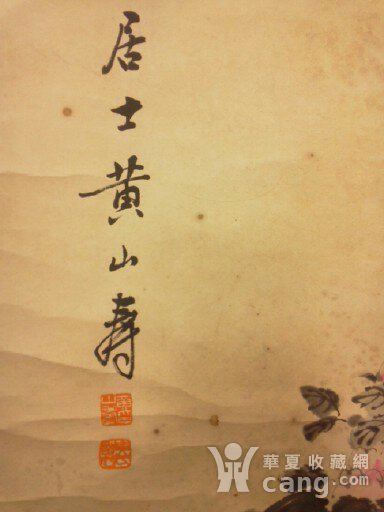 居士黄山壽
華夏收藏網
cang.com